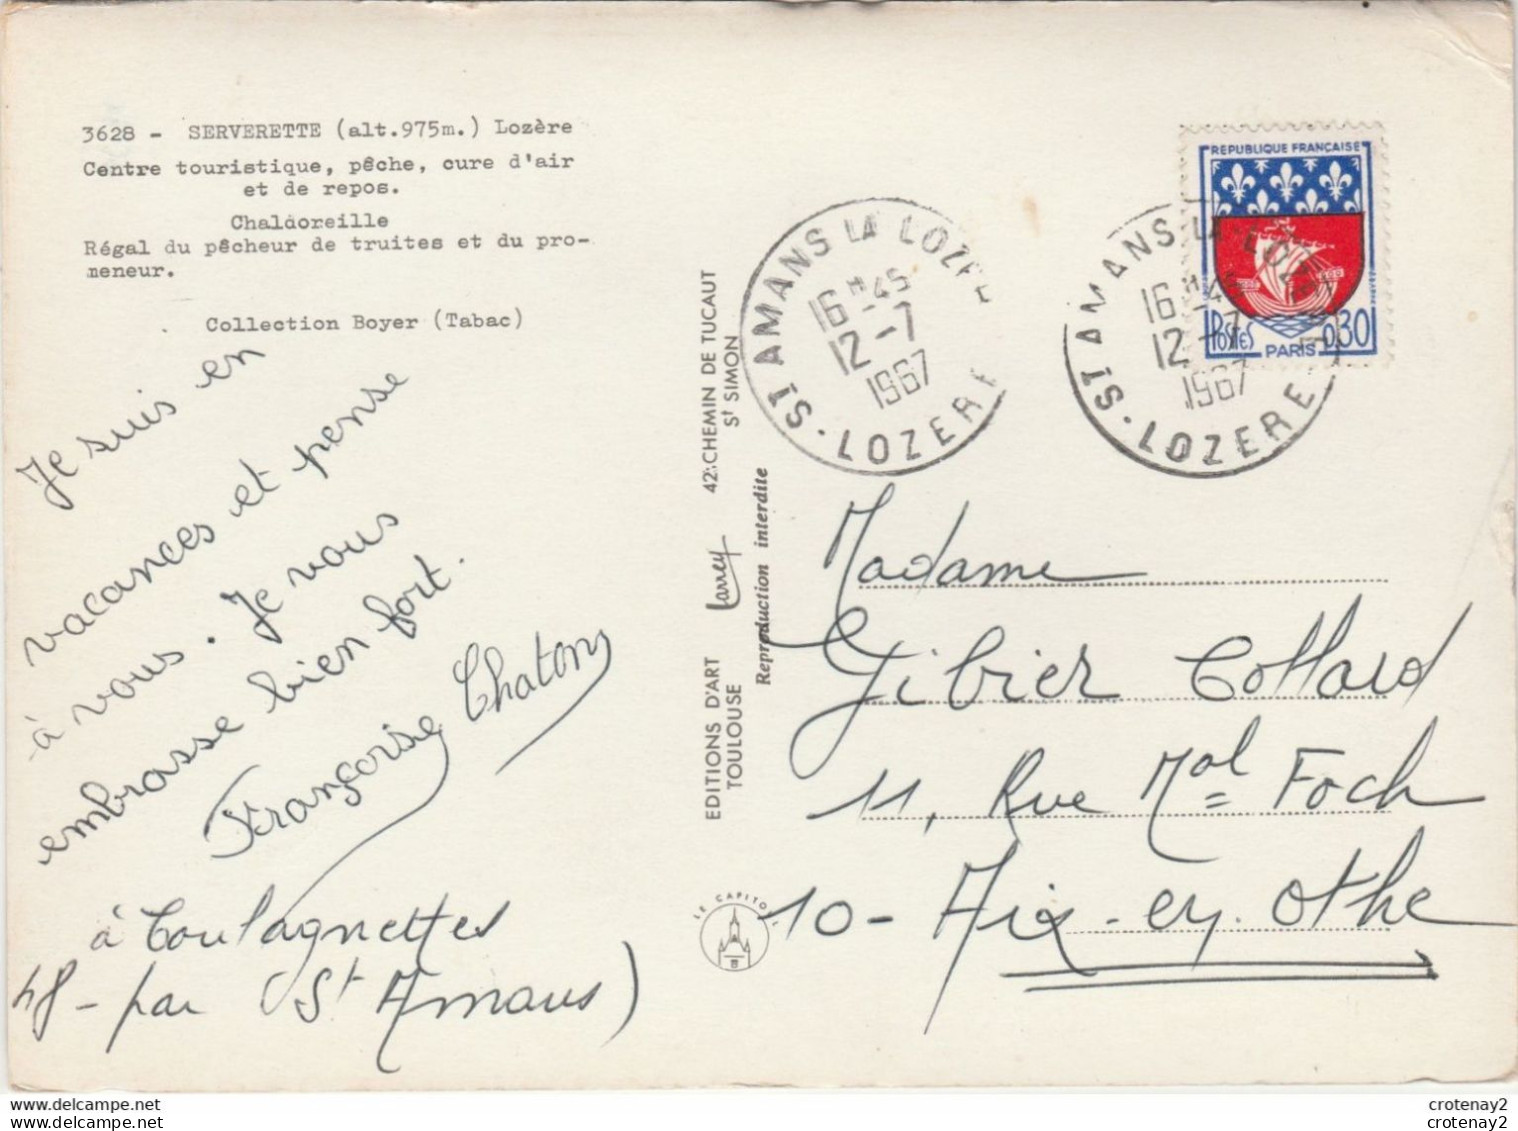 3628 - SERVERETTE (alt.975m.) Lozère
Centre touristique, pêche, cure d'air
et de repos.
Chaldoreille
Régal du pêcheur de truites et du pro-
meneur.
Collection Boyer (Tabac)
Je suis en
vacances et pense
à vous. Je vous
embrasse bien fort.
Françoise Chaton
à Coulagnettes
48 - par (St Amans)
EDITIONS D'ART Larrey 42, CHEMIN DE TUCAUT
TOULOUSE St SIMON
Reproduction interdite
LE CAPITOLE
ST AMANS LA LOZERE
16H45
12-7
1967
LOZERE
ST AMANS LA LOZERE
16H45
12-7
1967
LOZERE
REPUBLIQUE FRANÇAISE
POSTES 0,30
PARIS
Madame
Gibier Collard
11, Rue Mal Foch
10 - Aix-en-Othe
delcampe.net
crotenay2
crotenay2